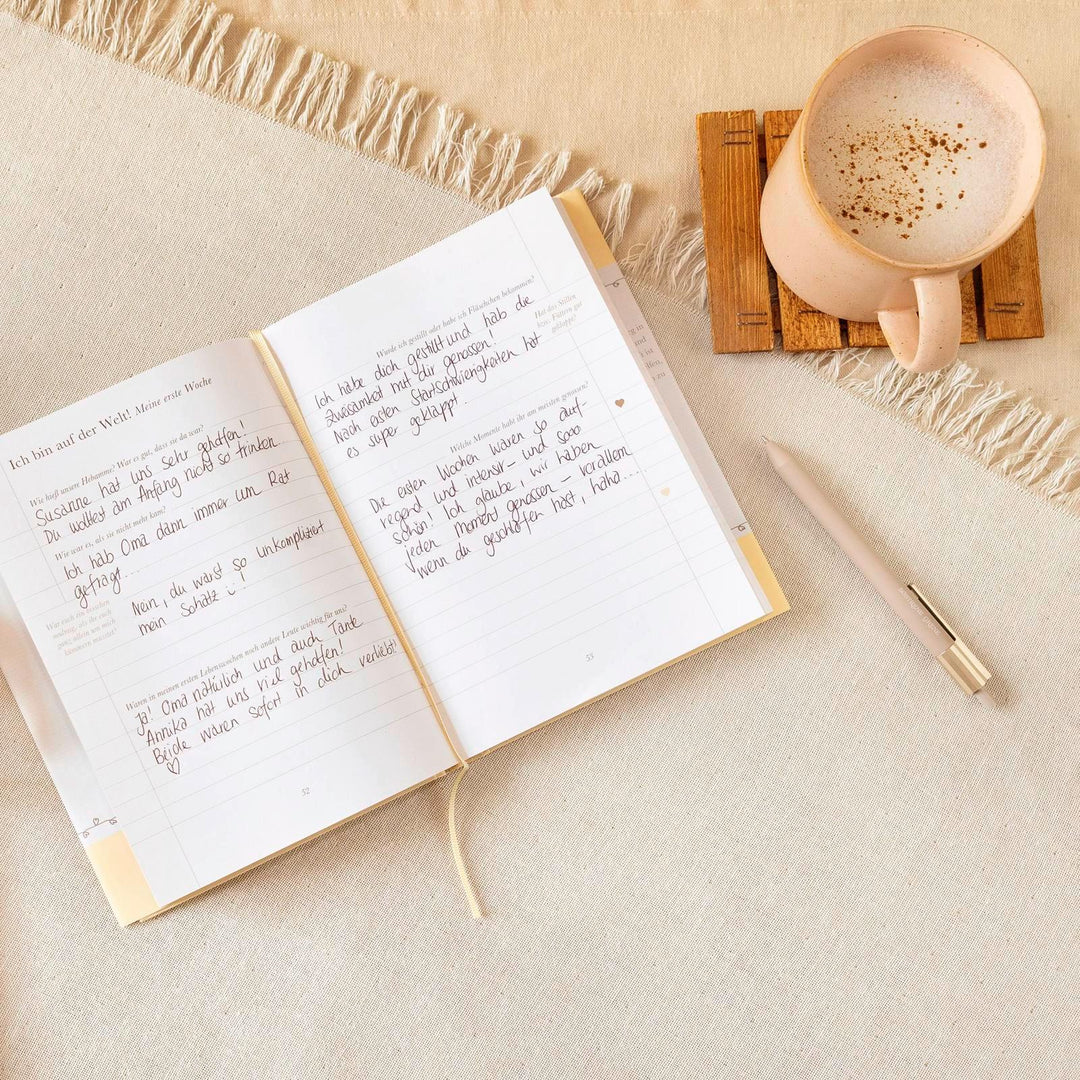 Ich bin auf der Welt! Meine erste Woche
Wie hieß unsere Hebamme? War es gut, dass sie da war?
Susanne hat uns sehr geholfen!
Du wolltest am Anfang nicht so trinken...
Wie war es, als sie nicht mehr kam?
Ich hab Oma dann immer um Rat
gefragt...
War euch ein bisschen
mulmig, als ihr euch
ganz allein um mich
kümmern musstet?
Nein, du warst so unkompliziert
mein Schatz
Waren in meinen ersten Lebenswochen noch andere Leute wichtig für uns?
Ja! Oma natürlich und auch Tante
Annika hat uns viel geholfen!
Beide waren sofort in dich verliebt!
♡
52
Wurde ich gestillt oder habe ich Fläschchen bekommen?
Ich habe dich gestillt und hab die
Zweisamkeit mit dir genossen.
Nach ersten Startschwierigkeiten hat
es super geklappt.
Hat das Stillen
bzw. Füttern gut
geklappt?
Welche Momente habt ihr am meisten genossen?
Die ersten Wochen waren so auf-
regend und intensiv - und sooo
schön! Ich glaube, wir haben
jeden Moment genossen - vorallem
wenn du geschlafen hast, haha...
53